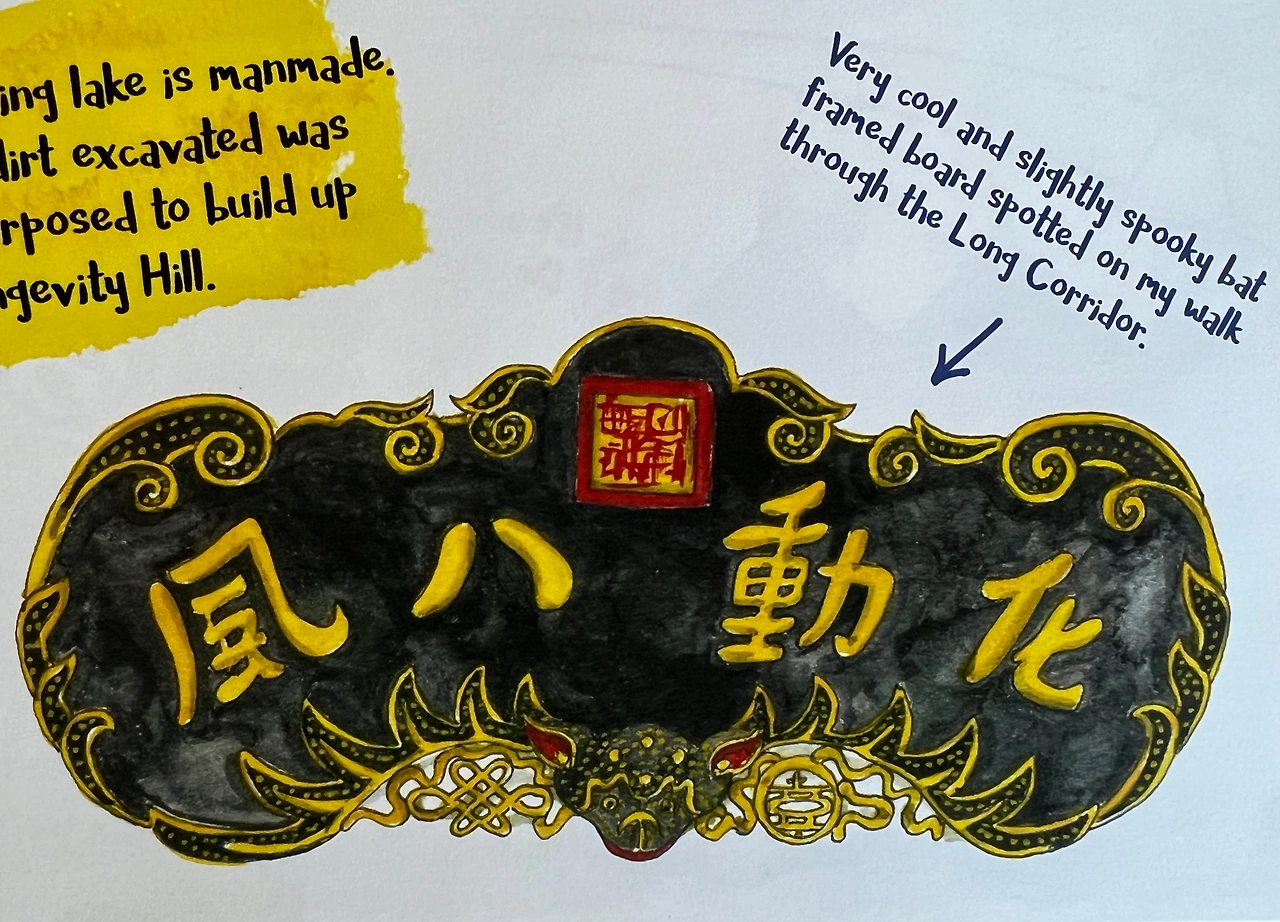 ing lake is manmade.
dirt excavated was
rposed to build up
ngevity Hill.
Very cool and slightly spooky bat
framed board spotted on my walk
through the Long Corridor.
風八動化